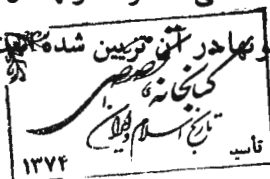 و بها در آن تزیین شده
کتابخانه تخصصی
تاریخ اسلام و ایران
تأسیس
۱۳۷۴